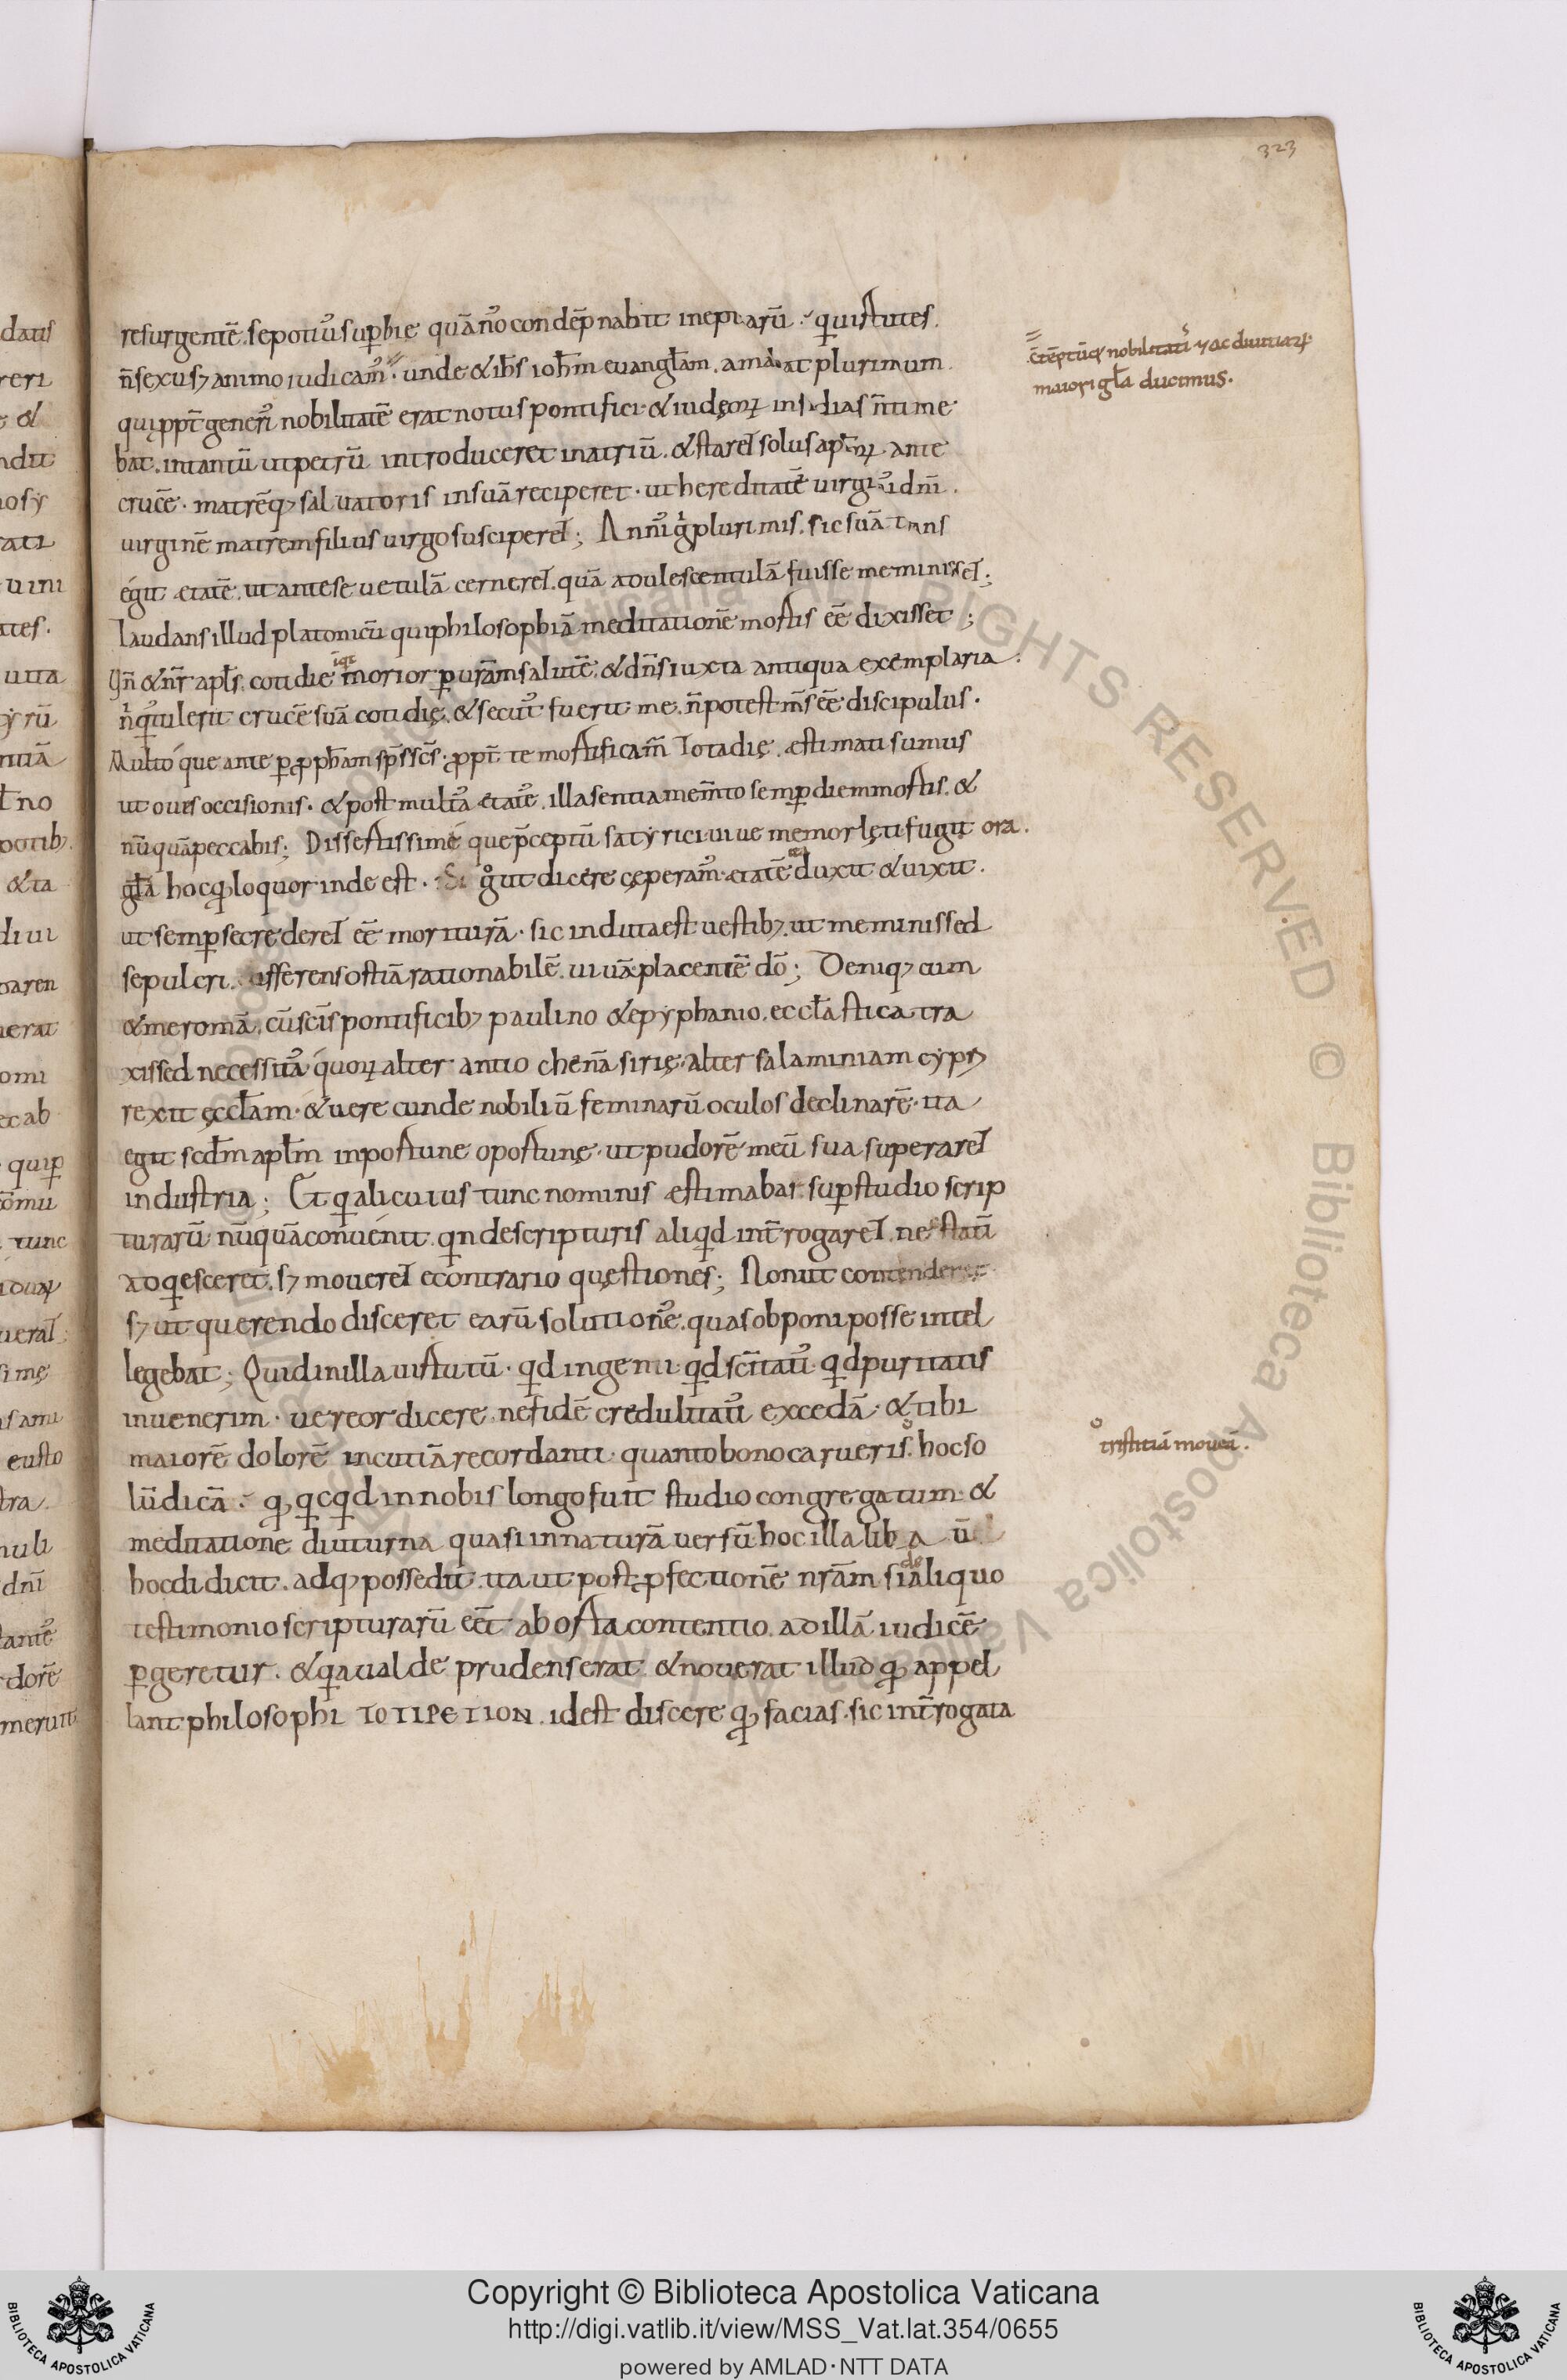 323
resurgentē. sepotiu᷒ sup̱bię quā nͦo condēp nabit ineptiarū. qui uirtutes.
n̄ sexu s; animo iudicam᷒. unde & ih̄s ioh̄m euangl̄am. amabat plurimum.
qui ppt̄ generi᷒ nobilitatē erat notus pontifici. & iudęoꝝ insidias n̄ time
bat. intantū ut petrū introduceret in atriū. & staret solus aptōꝝ ante
crucē. matrēq; saluatoris in suā reciperet. ut hereditatē uirgi᷒ dn̄i.
uirginē matrem filius uirgo susciperet; Anni᷒ g̊ plurimis. sic suā trans
egit etatē. ut ante se uetulā cerneret. quā adulescentulā fuisse meminisset;
laudans illud platonicū qui philosophiā meditationē mortis eē dixisset;
Un̄ & nr̄ apl̄s. cotidie morior p̱ urām salutē. & dn̄s iuxta antiqua exemplaria.
n q᷒ tulerit crucē suā cotidię. & secut᷒ fuerit me. n̄ potest m̄s eē discipulus.
Multo que ante p̱ ꝓph̄am sp̄s sc̄s. ꝓpt̄ te mortificam̄ tota die. ęstimati sumus
ut oues occisionis. & post multa᷒ etate᷒. illa sentia mem̄to semp̱ diem mortis. &
nūquā peccabis; Dissertissime que p̄ceptū satyrici. uiue memor lęti fugit ora.
gl̄a hoc qd loquor inde est. Si g̊ ut dicere cęperam᷒. etatē duxit & uixit.
ut semp̱ se crederet eē moriturā. sic induta est uestib;. ut meminissed
sepulcri. offerens ostiā rationabilē. uiuā placentē dō; Deniq; cum
& me romā. cū sc̄is pontificib; paulino & epyphanio. eccl̄astica tra
xissed necessita᷒. quoꝝ alter antiochenā sirię. alter salaminiam cypri
rexit ęccl̄am. & uerecunde nobiliū feminarū oculos declinarē. ita
egit scd̄m apl̄m inportune oportunę. ut pudorē meū sua superaret
industria; Et q̱ alicuius tunc nominis ęstimabar. sup̱ studio scrip
turarū nūquā conuenit. q̱n de scripturis aliqd int̄rogaret. ne statī
adq̱esceret. s; moueret econtrario quęstiones; Non ut contenderet
s; ut querendo disceret earū solutione᷒. quas obponi posse intel
legebat; Quid in illa uirtutū. qd ingenii. qd sc̄itati᷒. qd puritatis
inuenerim. uereor dicere. ne fidē credulitati᷒ excedā. & tibi
maiorē dolorē incutiā recordanti. quanto bono carueris. hoc so
lū dicā. qd q̱cqd in nobis longo fuit studio congregatum. &
meditatione diuturna quasi in naturā uersū hoc illa lib a ū
hoc didicit. adq; possedit. ita ut post ꝓfectionē nrām si de aliquo
testimonio scripturarū eēt aborta contentio. ad illā iudicē
p̱geretur. & q̱a ualde prudens erat. & nouerat illud qd appel
lant philosophi TO TIPETION. id est discere qd facias. sic int̄rogata
maiori gl̄a ducimus.
tristitiā moueā.
Copyright © Biblioteca Apostolica Vaticana
http://digi.vatlib.it/view/MSS_Vat.lat.354/0655
powered by AMLAD·NTT DATA
BIBLIOTECA APOSTOLICA VATICANA
BIBLIOTECA APOSTOLICA VATICANA